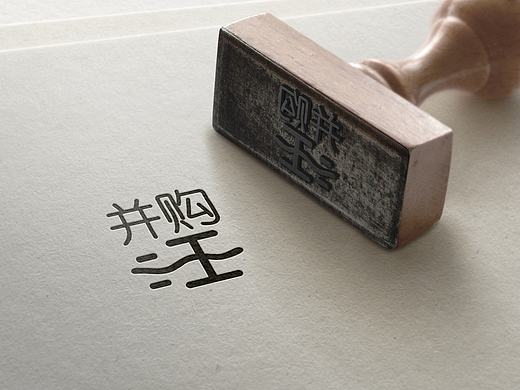 并购
汪